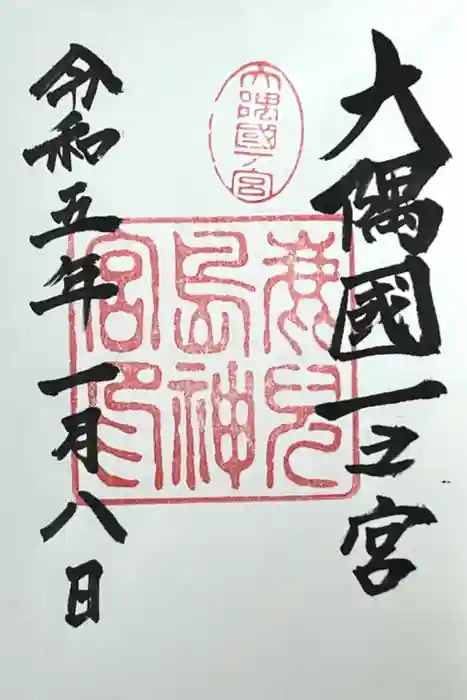 大隅國一之宮
大隅國一ノ宮
鹿兒島神宮印
令和五年一月八日